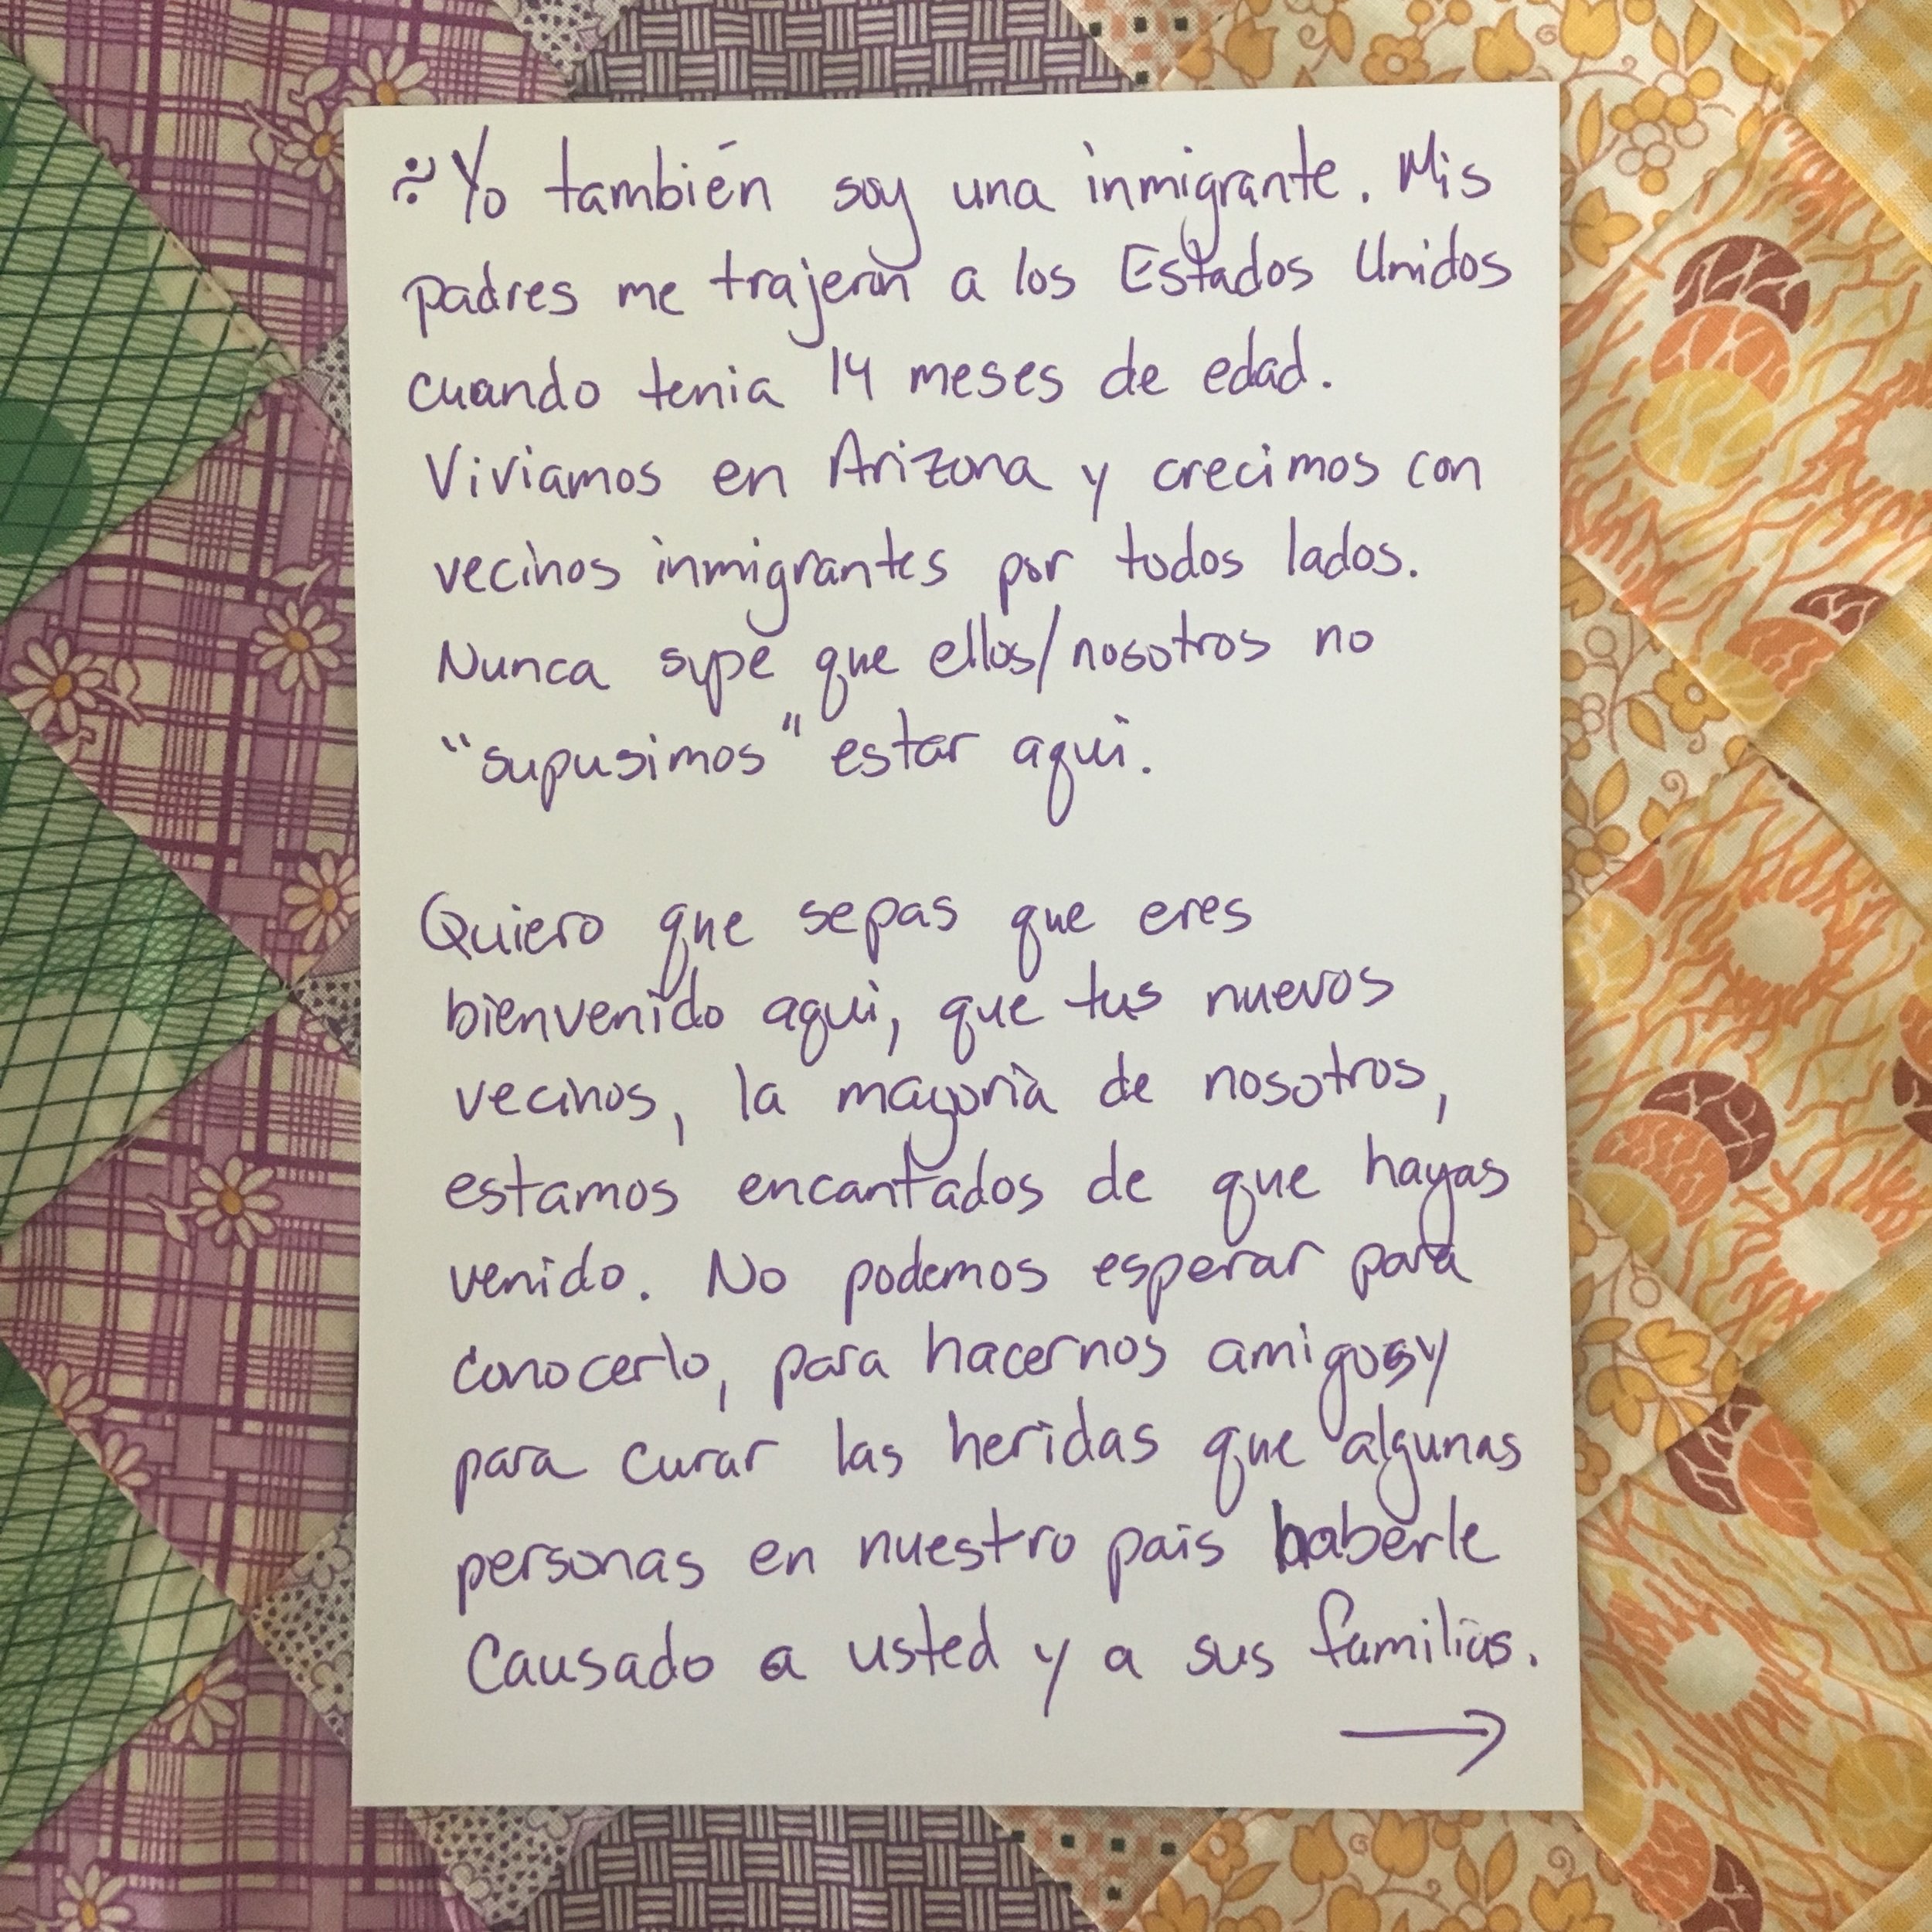 Yo también soy una inmigrante. Mis
padres me trajeron a los Estados Unidos
cuando tenia 14 meses de edad.
Viviamos en Arizona y crecimos con
vecinos inmigrantes por todos lados.
Nunca supe que ellos/nosotros no
"supusimos" estar aqui.
Quiero que sepas que eres
bienvenido aqui, que tus nuevos
vecinos, la mayoría de nosotros,
estamos encantados de que hayas
venido. No podemos esperar para
conocerlo, para hacernos amigos y
para curar las heridas que algunas
personas en nuestro pais haberle
causado a usted y a sus familias.
→